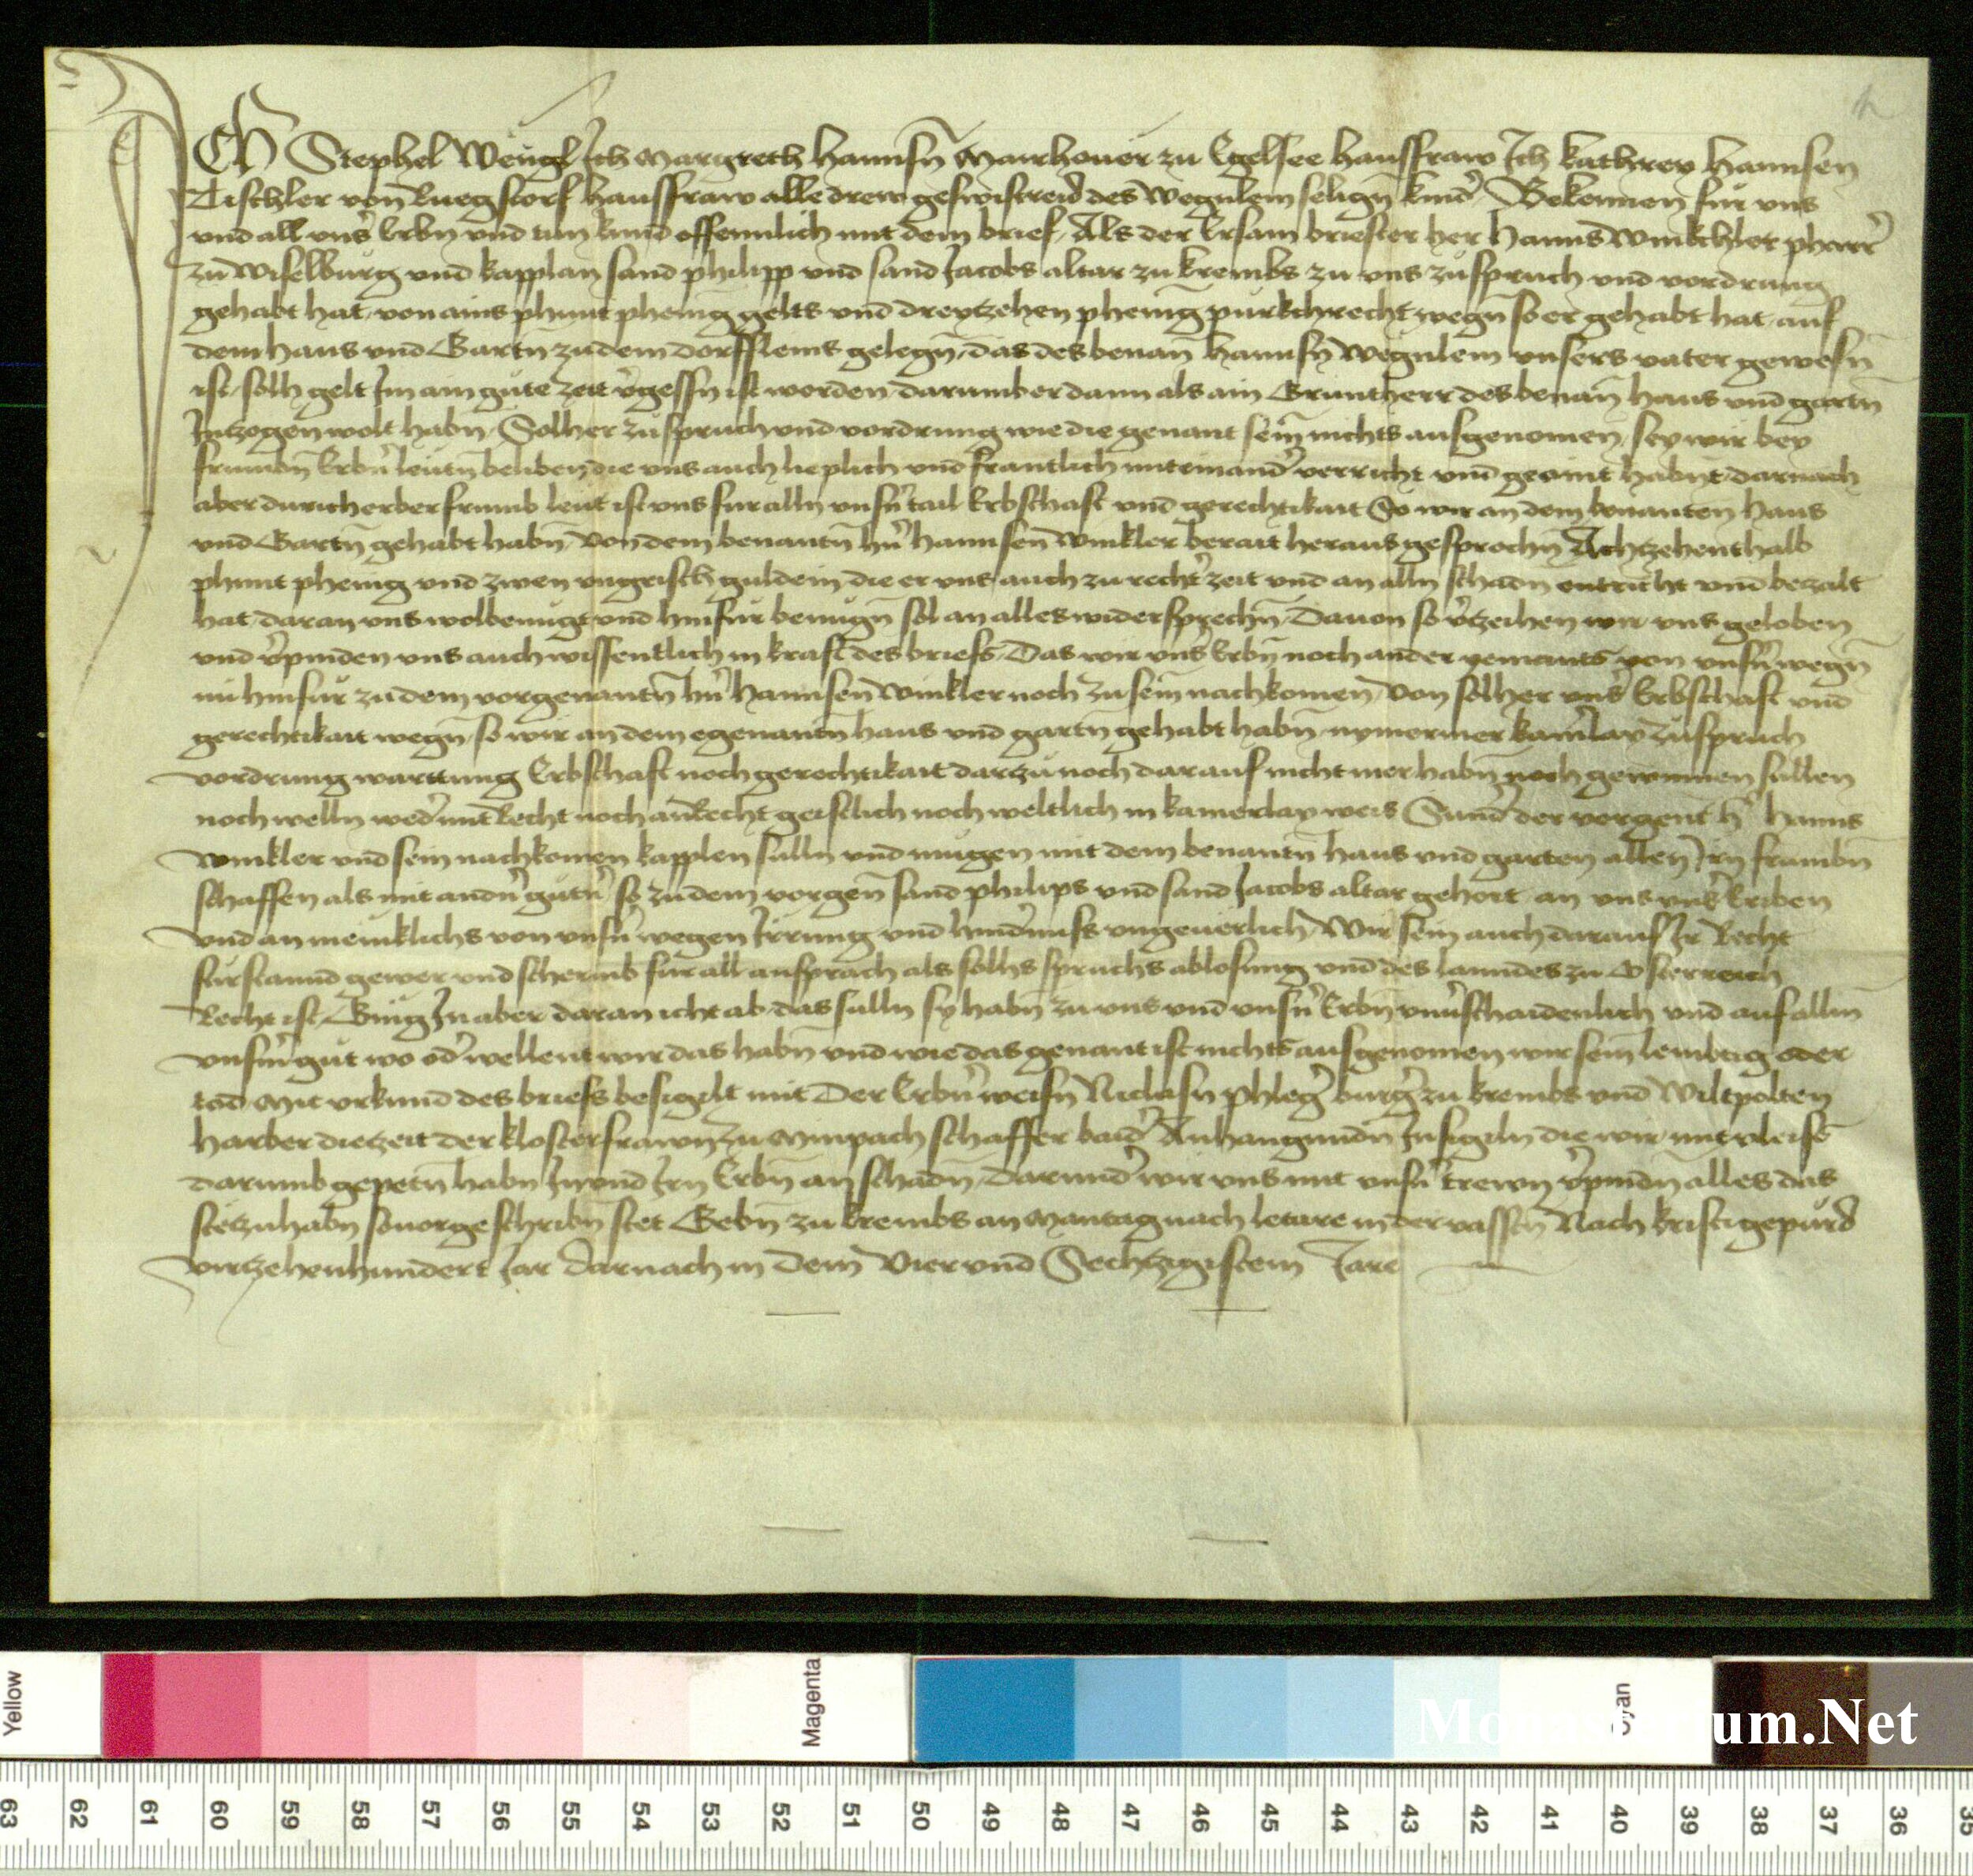 ICH Stephel Weugl Ich Margreth Hannsn̄ Mairhouer zu Egelsee hausfraw Ich kathrey Hannsen
Tischler von Ruegstorf hausfraw alle drew geswistreid des Wegnlem selign̄ kind' Bekennen fur vns
vnd all vns' Erbn vnd tun kund offennlich mit dem brief Als der Ersam briester her Hanns Winkchler pharr'
zu Wiselburg vnd kapplan sand philipp vnd sand Jacobs altar zu krembs zu vns zuspruch vnd vordrung
gehabt hat von ains phunt phenig gelts vnd dreytzehen phenig purkchrecht wegn̄ so er gehabt hat auf
dem haus vnd Gartn̄ zu dem dorfflems gelegn̄ das des benan̄ Hannsn̄ Wegnlem vnsers vater gewesn̄
ist solh gelt Im ain gute zeit v'gessn ist worden darumb er dann als ain Gruntherr des benan̄ haus vnd gartn̄
Intzogen wolt habn Solher zuspruch vnd vordrung wie die genant sein nichts ausgenomen sey wir bey
frumbn̄ Erbn' leutn̄ beliben die vns auch lieplich vnd frantlich miteinand' verricht vnd geaint habnt darnach
aber durich erber frumb leut ist vns fur alln vnsn̄ tail Erbschaft vnd gerechtikait So wir an dem benanten haus
vnd Gartn̄ gehabt habn̄ von dem benantn̄ hn' hannsen Winkler berait heraus gesprochn̄ Achtzehenthalb
phunt phenig vnd zwen vngrisch guldein die er vns auch zu recht' zeit vnd an alln schadn entricht vnd bezalt
hat daran vns wolbenugt vnd hinfur benugn̄ sol an alles widersprechn̄ Dauon so v'tzeihen wir vns geloben
vnd v'pinden vns auch wissentlich in kraft des briefs Das wir vns' Erbn̄ noch ander yemants von vnsn' wegn̄
nu hinfur zu dem vorgenantn̄ hn' hannsen Winkler noch zu sein nachkomen von solher vns' Erbschaft vnd
gerechtikait wegn̄ so wir an dem egenantn̄ haus vnd gartn̄ gehabt habn̄ nymermer kain'lay zuspruch
vordrung warttung Erbschaft noch gerechtikait dartzu noch darauf nicht mer habn̄ noch gewinnen sullen
noch welln wed' mit Recht noch an Recht geistlich noch weltlich in kainerlay weis Sund' der vorgent h' hanns
Winkler vnd sein nachkomen kapplen sulln vnd mugen mit dem benantn̄ haus vnd garten allen Irn frumbn̄
schaffen als mit andn' gutn' so zu dem vorgen̄ sand philips vnd sand Jacobs altar gehort an vns vns' Eriben
vnd an meniklichs von vnsn' wegen Irrung vnd hind'nuss vngeuerlich Wir sein auch darauf Ir Recht
furstannd gewer vnd schermb fur all ansprach als solhs spruchs ablosung vnd des lanndes zu Osterreich
Recht ist Gieng In aber daran icht ab das sulln sy habn̄ zu vns vnd vnsn' Erbn̄ vnu'schaidenlich vnd auf alln
vnsn' gut wo od' wellent wir das habn̄ vnd wie das genant ist nichts ausgenomen wir sein lembtig oder
tod Mit vrkund des briefs besigilt mit Der Erbn' weisn̄ Niclasn̄ Phleg' burg' zu krembs vnd Wiltpolten
Harber die zeit der klosterfrawn̄ zu Minpach schaffer baid' Anhangundn̄ Insigiln die wir mit vleiss
darumb gepetn̄ habn̄ In vnd Irn Erbn̄ an schadn̄ Darund' wir vns mit vnsn' trewn v'pindn̄ alles das
stet zu habn̄ so vorgeschribn̄ stet Gebn̄ zu krembs an Mantag nach letare in der vasstn̄ Nach kristi gepurd
virtzehenhundert Jar darnach in dem Vier vnd Sechtzigistem Jare
Yellow
Magenta
63 62 61 60 59 58 57 56 55 54 53 52 51 50 49 48 47 46 45 44 43 42 41 40 39 38 37 36 35